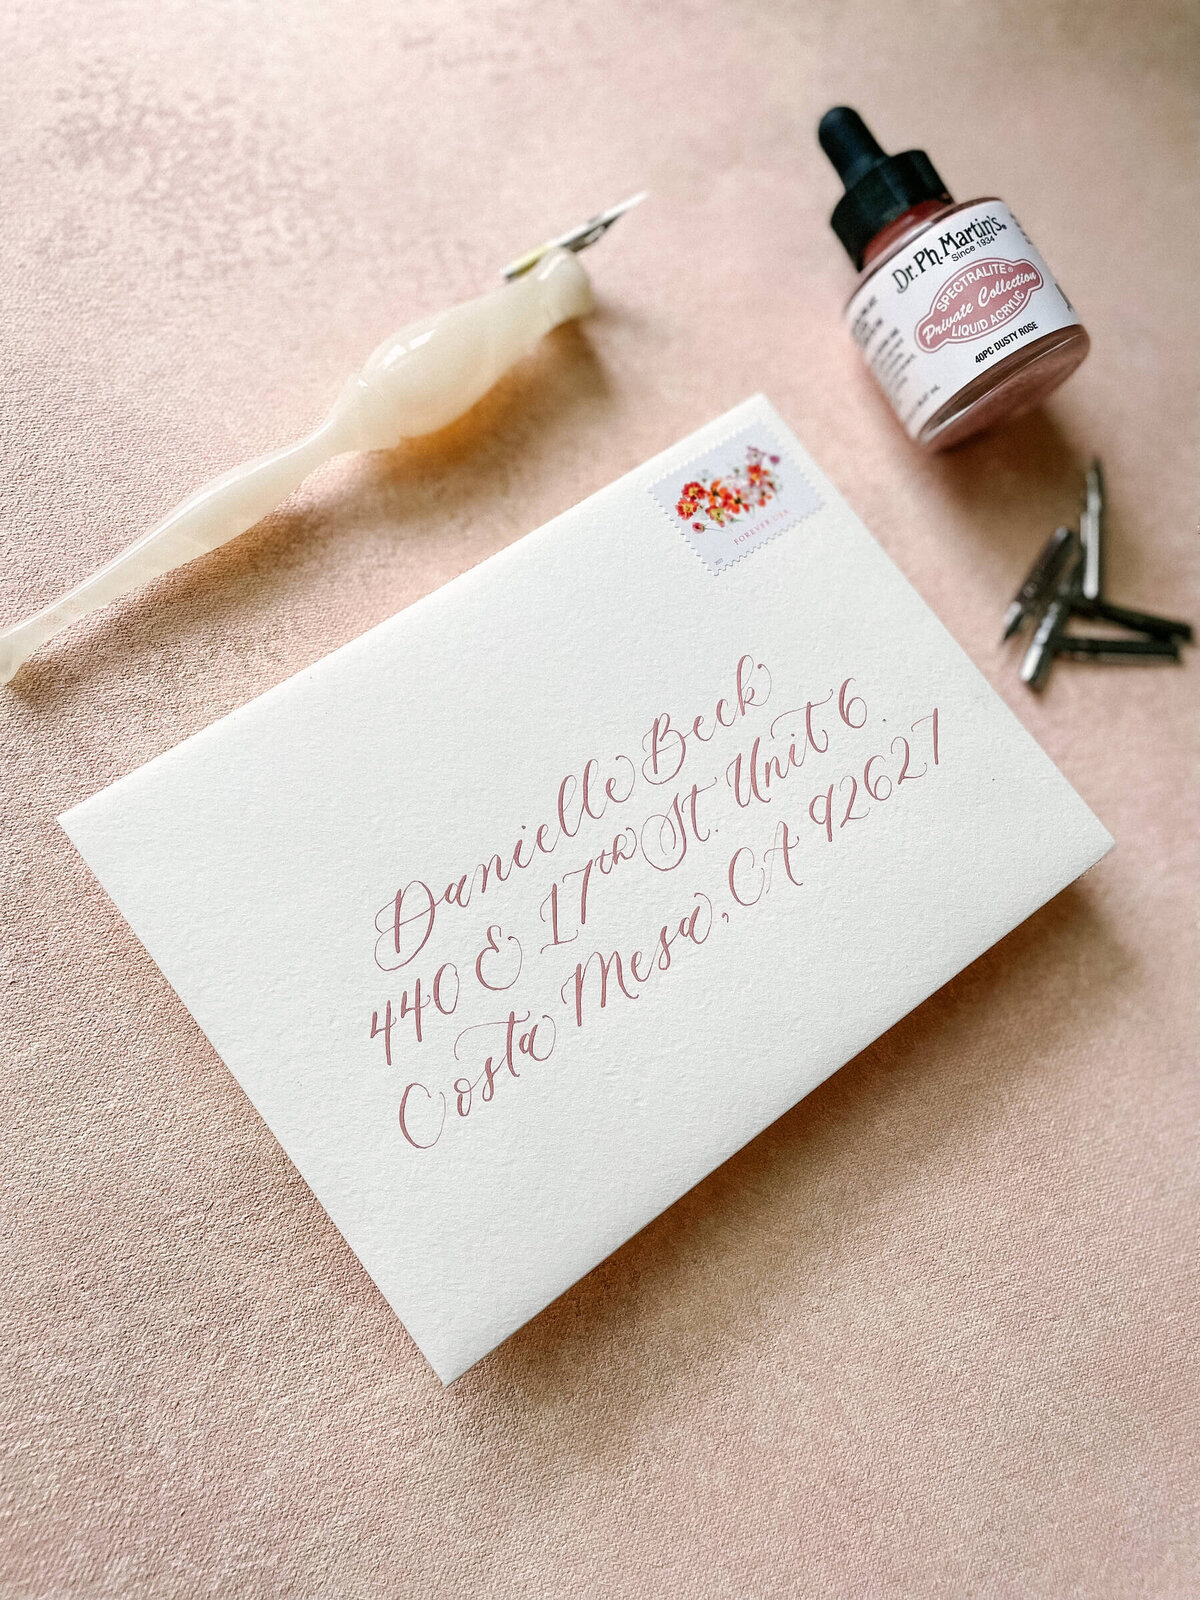 Dr. Ph. Martin's®
Since 1934
SPECTRALITE®
Private Collection
LIQUID ACRYLIC
40PC DUSTY ROSE
FOREVER USA
Danielle Beck
440 E 17th St. Unit 6.
Costa Mesa, CA 92627